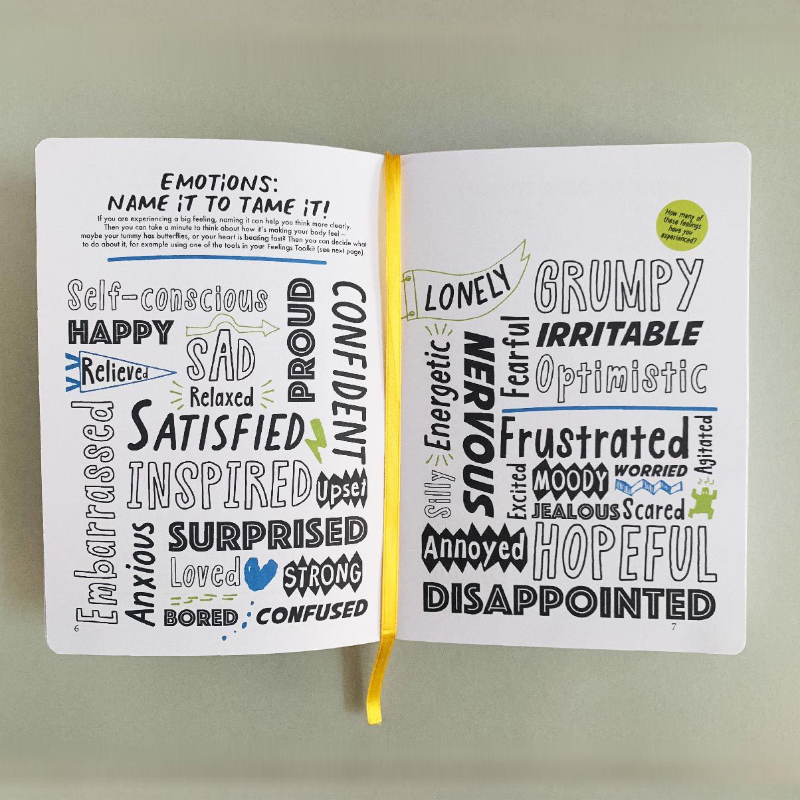 EMOTIONS:
NAME IT TO TAME IT!
If you are experiencing a big feeling, naming it can help you think more clearly.
Then you can take a minute to think about how it's making your body feel –
maybe your tummy has butterflies, or your heart is beating fast? Then you can decide what
to do about it, for example using one of the tools in your Feelings Toolkit (see next page).
Self-conscious
HAPPY
Relieved
SAD
Relaxed
PROUD
CONFIDENT
SATISFIED
Embarrassed
INSPIRED
Upset
Anxious
SURPRISED
Loved
STRONG
BORED
CONFUSED
6
How many of
these feelings
have you
experienced?
LONELY
GRUMPY
Energetic
NERVOUS
Fearful
IRRITABLE
Optimistic
Frustrated
Agitated
Silly
Excited
MOODY
WORRIED
JEALOUS
Scared
Annoyed
HOPEFUL
DISAPPOINTED
7